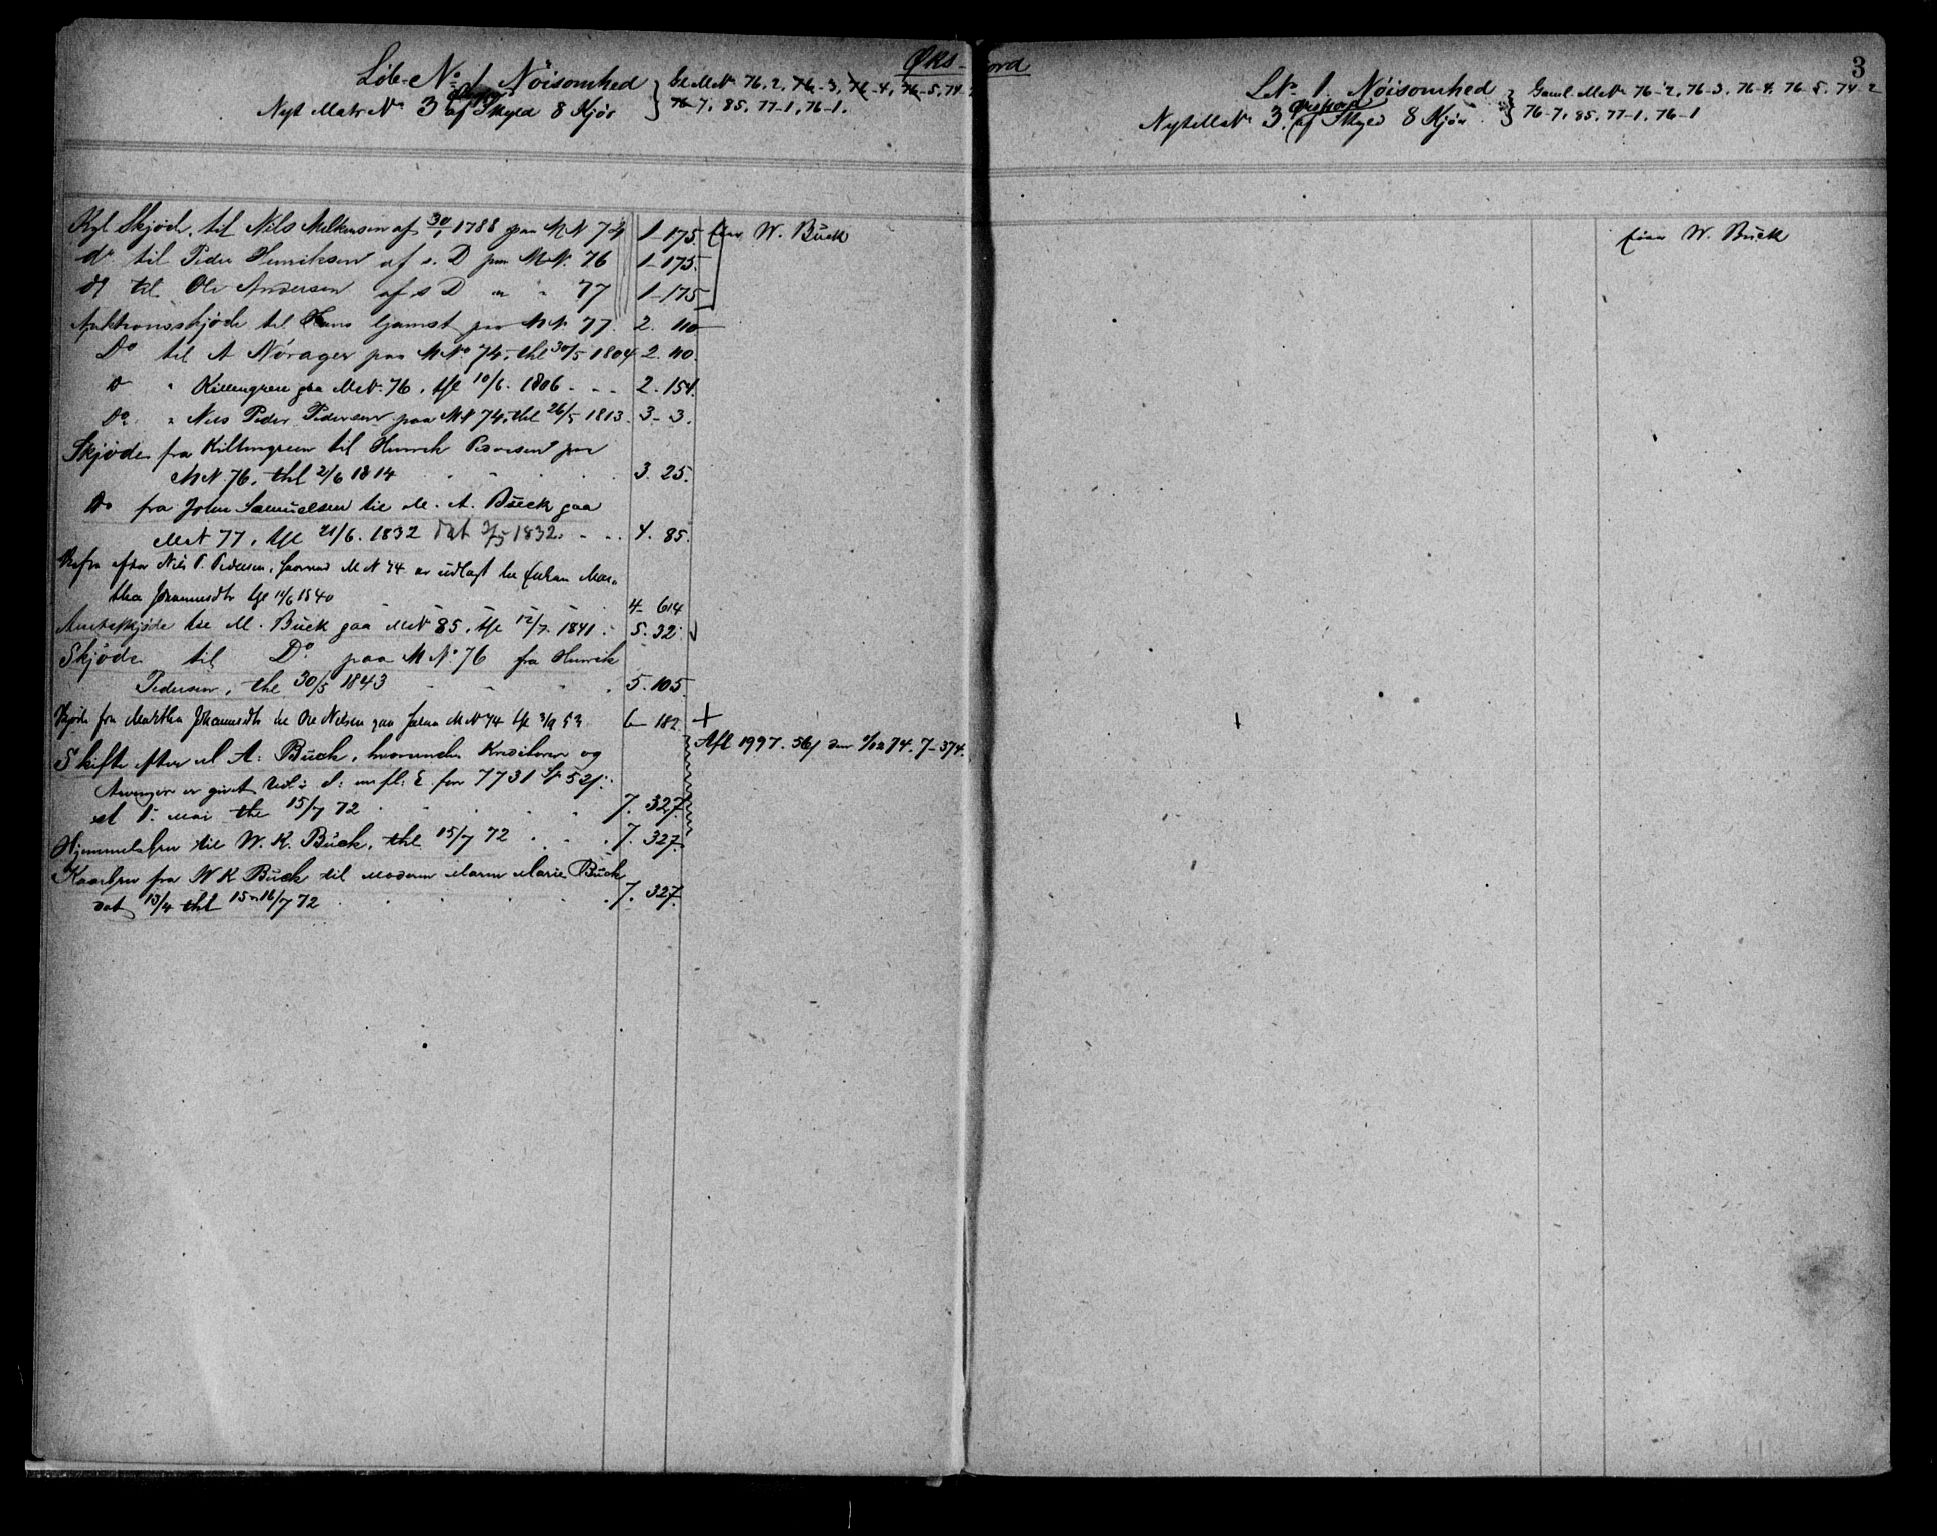 Øks-fjord
Löb. No 1 Nöisomhed
Gl. M.No 76.2, 76-3, 76-4, 76-5, 74-2
76-7, 85, 77-1, 76-1.
Nyt Matr No 3 af Skyld 8 Kjör
Kgl Skjöde til Nils Mikkelsen af 30/1 1788 paa M N 74 1-175. Eier W. Buck
do til Peder Henriksen af s. D paa M.N. 76 1-175.
do til Ole Andersen af s D " " 77 1-175
Auktionsskjöde til Hans Gamst paa M N 77. 2. 110
Do til A Nörager paa M No 74, thl 30/5 1804 2. 110.
Do " Killengreen paa M.N. 76, thl 10/6. 1806 2. 154.
Do. " Nils Peder Pedersen paa M N 74, thl 26/5 1813. 3-3.
Skjöde fra Killengreen til Henrik Pedersen paa
M N. 76, thl 2/6 1814 3. 25.
Do fra John Samuelsen til M. A. Buck paa
M N 77, thl 21/6. 1832 dat 3/5 1832. 4. 85.
efter Nils P. Pedersen, hvorved M N 74 er udlagt til Enken Mar-
tha Johannesdtr thl 11/6 1840 4-614
Auktskjöde til M. Buck paa M N 85, thl 12/7. 1841. 5. 32.
Skjöde til Do. paa M No. 76 fra Henrik
Pedersen, thl 30/5 1843 5. 105.
Skjöde fra Martha Johannesdtr til Ole Nilsen paa M N 74 thl 3/9 53 6-182 +
Skifte efter M A. Buck, hvorunder Kreditorer og
Afl 1997. 56/ den 1/12 74. 7-374.
Arvinger er givet Udl. i for 7731 Sp 52/.
7. 327.
mai thl 15/7 72
Hjemmelsbrev til W. K. Buck, thl 15/7 72 7. 327.
Kaarbrev fra W K Buck til Moderen Maren Marie Buck
dat 13/4 thl 15-16/7 72 7. 327.
3
L No 1. Nöisomhed
Gaml. M N 76-2, 76-3, 76-4, 76-5, 74-2
76-7, 85, 77-1, 76-1
Nyt M No 3. af Skyld 8 Kjör
Eier W. Buck